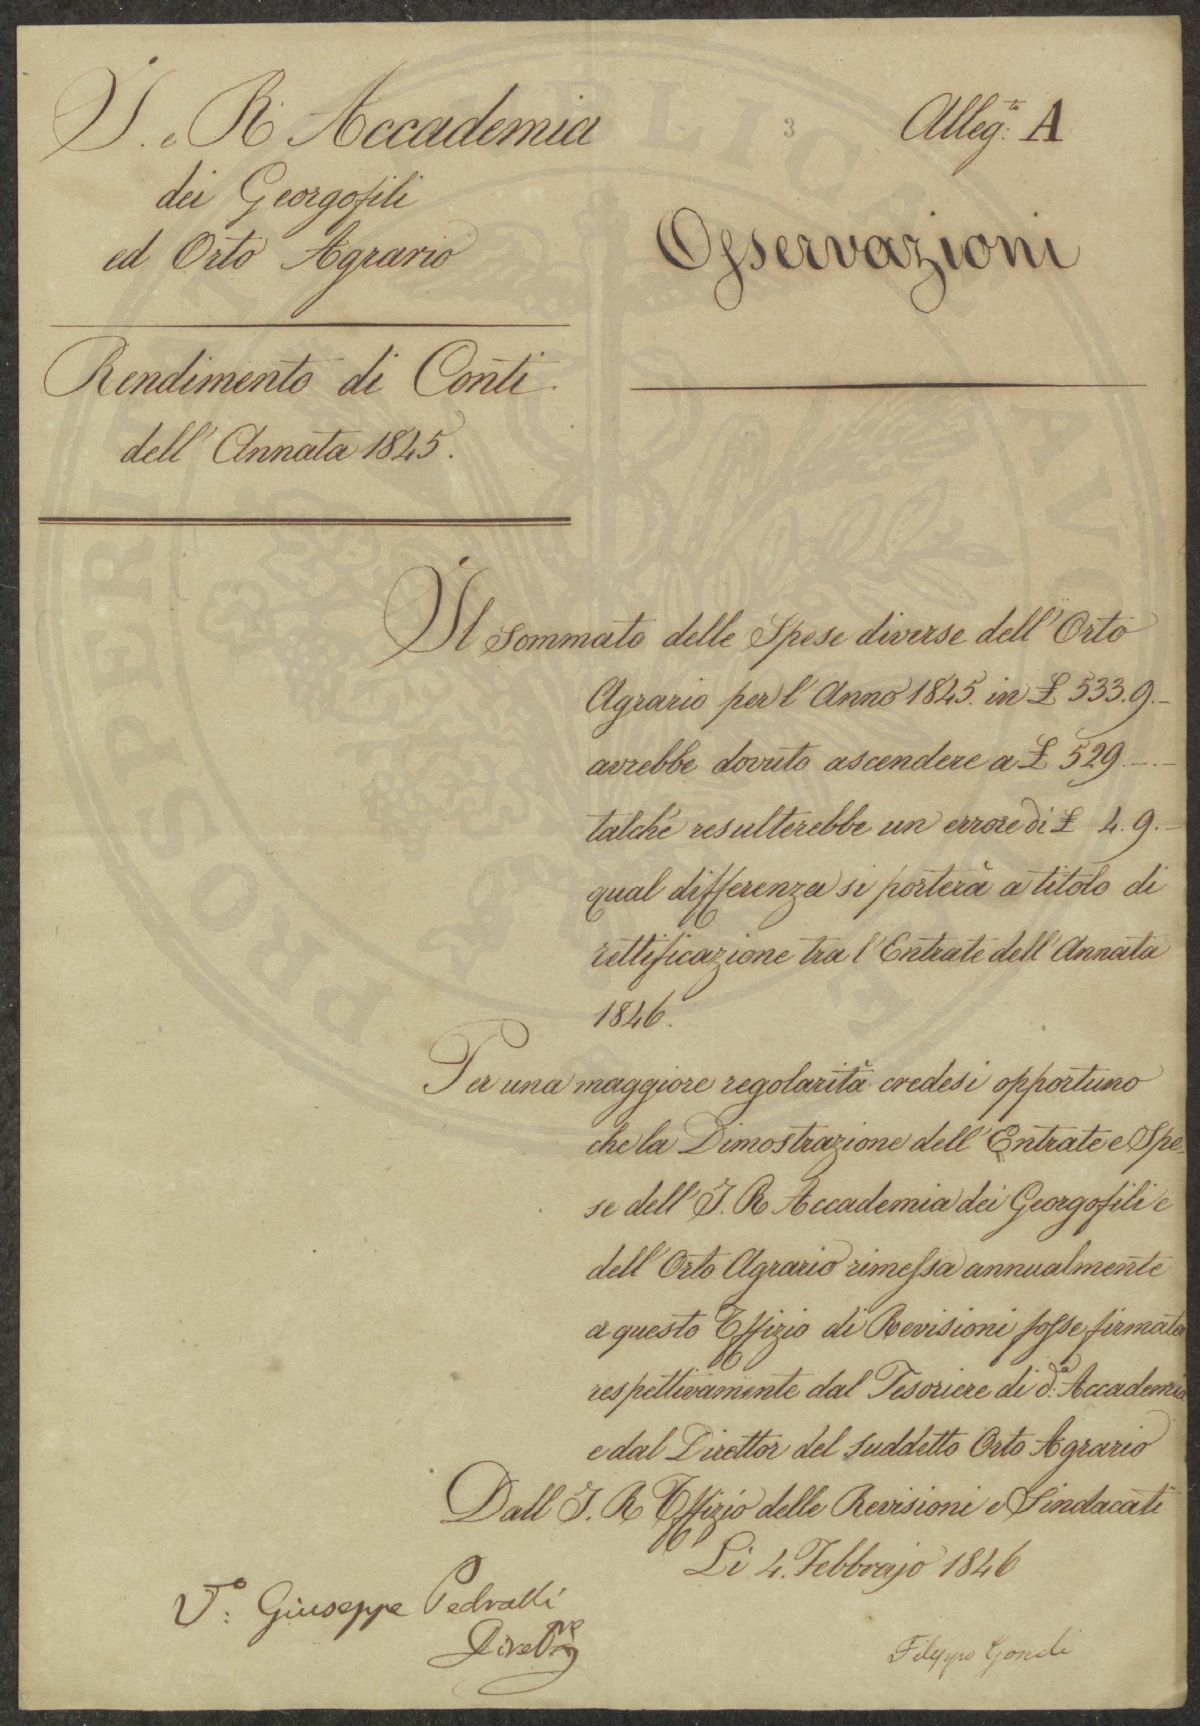 I. e R. Accademia
dei Georgofili
ed Orto Agrario
Rendimento di Conti
dell' Annata 1845.
3
Alleg.to A
Osservazioni
Il sommato delle Spese diverse dell' Orto
Agrario per l' Anno 1845. in £ 533. 9. –
avrebbe dovuto ascendere a £ 529. – . –
talché resulterebbe un errore di £ 4. 9. –
qual differenza si porterà a titolo di
rettificazione tra l' Entrate dell' Annata
1846.
Per una maggiore regolarità credesi opportuno
che la Dimostrazione dell' Entrate e Spe-
se dell' I. R. Accademia dei Georgofili e
dell' Orto Agrario rimessa annualmente
a questo Uffizio di Revisioni fosse firmata
respettivamente dal Tesoriere di d.a Accademia
e dal Direttor del suddetto Orto Agrario
Dall I. R. Uffizio delle Revisioni e Sindacati
Li 4. Febbrajo 1846
V.o: Giuseppe
Filippo Gondi